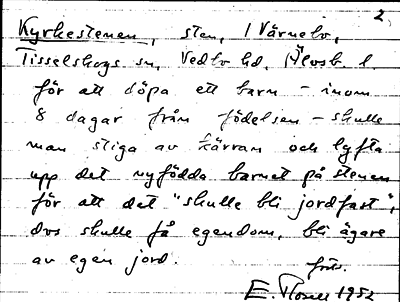 2.
Kyrkestenen, sten, i Värnebo,
Tisselskogs sn, Vedbo hd, Älvsb. l.
för att döpa ett barn - inom
8 dagar från födelsen - skulle
man stiga av kärran och lyfta
upp det nyfödda barnet på stenen
för att det "skulle bli jordfast",
dvs skulle få egendom, bli ägare
av egen jord.
forts.
E. 1952